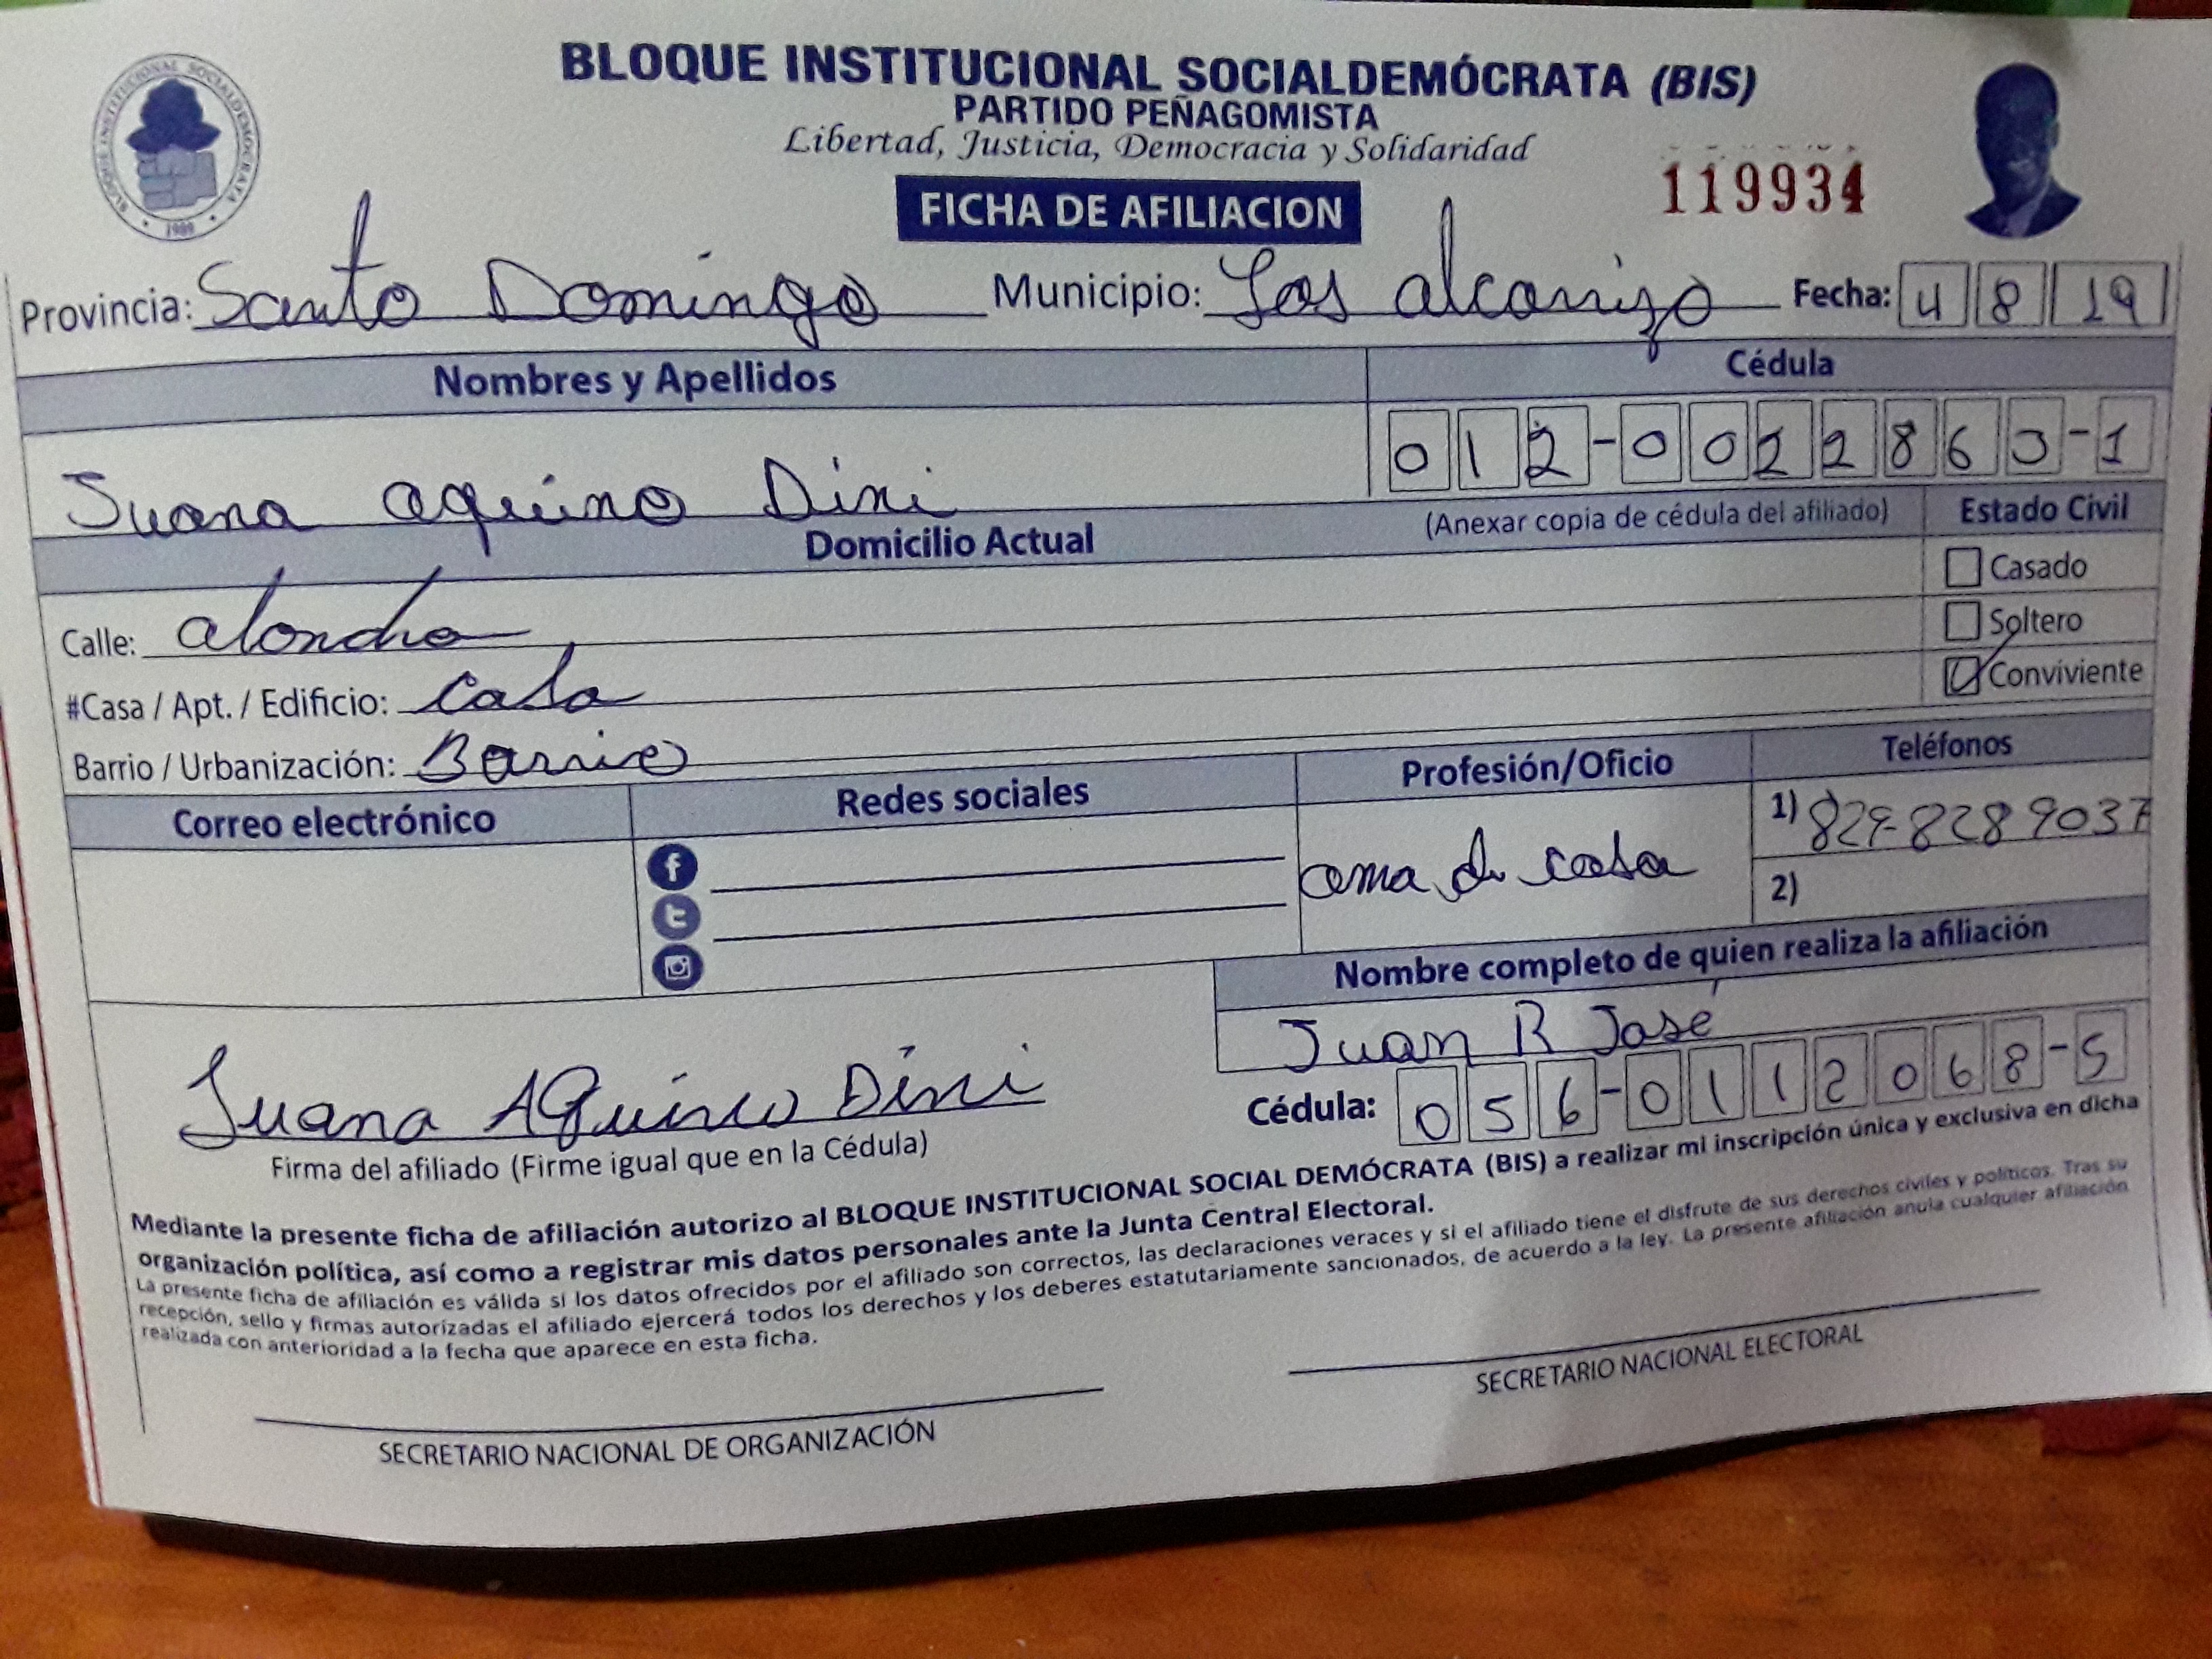 BLOQUE INSTITUCIONAL SOCIALDEMÓCRATA (BIS)
PARTIDO PEÑAGOMISTA
Libertad, Justicia, Democracia y Solidaridad
BLOQUE INSTITUCIONAL SOCIALDEMOCRATA
1989
119934
FICHA DE AFILIACION
Provincia: Santo Domingo Municipio: Los alcarrizo Fecha: 4 8 19
Nombres y Apellidos Cédula
Juana aquino Dini 012-0022863-1
Domicilio Actual (Anexar copia de cédula del afiliado) Estado Civil
Casado
Calle: alondra Soltero
#Casa / Apt. / Edificio: Casa Conviviente
Barrio / Urbanización: Barrio
Correo electrónico Redes sociales Profesión/Oficio Teléfonos
1) 829-828 9037
ama de casa
2)
Nombre completo de quien realiza la afiliación
Juan R José
Juana AQuino Dini Cédula: 056-0112068-5
Firma del afiliado (Firme igual que en la Cédula)
Mediante la presente ficha de afiliación autorizo al BLOQUE INSTITUCIONAL SOCIAL DEMÓCRATA (BIS) a realizar mi inscripción única y exclusiva en dicha
organización política, así como a registrar mis datos personales ante la Junta Central Electoral.
La presente ficha de afiliación es válida si los datos ofrecidos por el afiliado son correctos, las declaraciones veraces y si el afiliado tiene el disfrute de sus derechos civiles y políticos. Tras su
recepción, sello y firmas autorizadas el afiliado ejercerá todos los derechos y los deberes estatutariamente sancionados, de acuerdo a la ley. La presente afiliación anula cualquier afiliación
realizada con anterioridad a la fecha que aparece en esta ficha.
SECRETARIO NACIONAL DE ORGANIZACIÓN SECRETARIO NACIONAL ELECTORAL